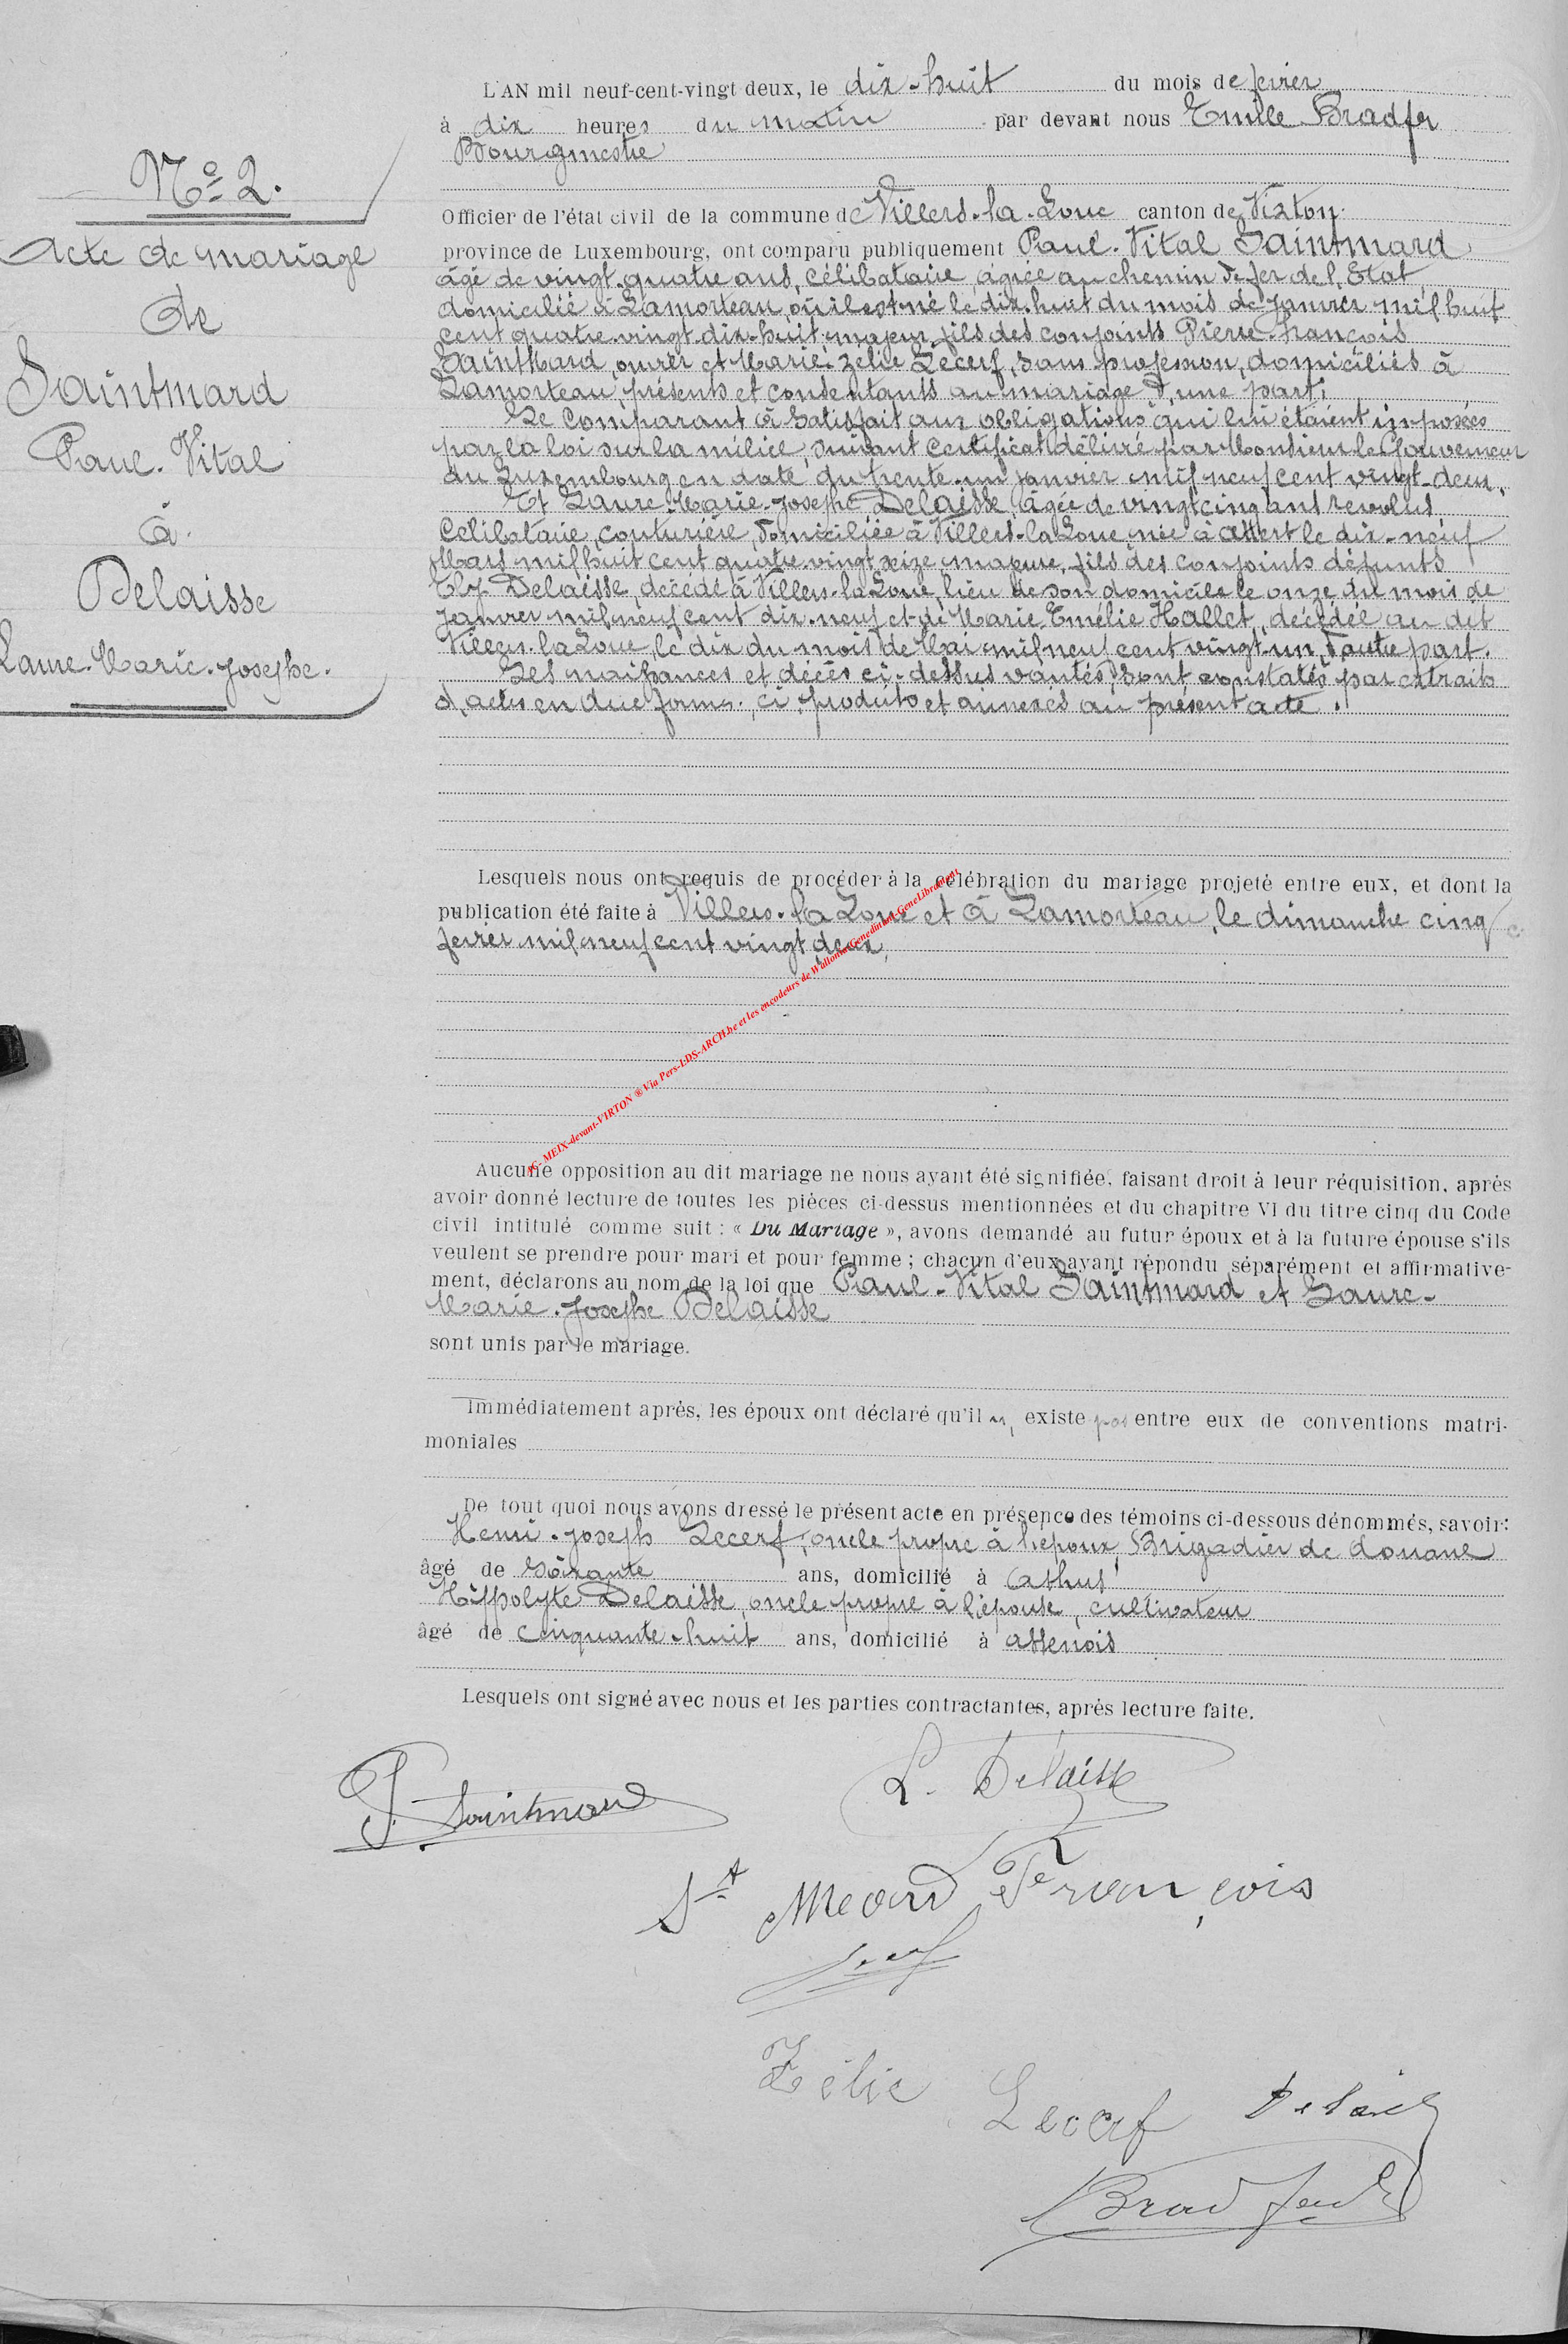 N° 2.
Acte de mariage
de
Saintmard
Paul-Vital
à
Delaisse
Laure-Marie-Josephe.
L'AN mil neuf-cent-vingt deux, le dix-huit du mois de fevrier
à dix heures du matin par devant nous Emile Bradfer
Bourgmestre
Officier de l'état civil de la commune de Villers-la-Loue canton de Virton
province de Luxembourg, ont comparu publiquement Paul-Vital Saintmard
âgé de vingt-quatre ans, célibataire, agréé au chemin de fer de l'Etat
domicilié à Lamorteau, où il est né le dix-huit du mois de Janvier mil huit
cent quatre-vingt-dix-huit, majeur, fils des conjoints Pierre-François
SaintMard, ouvrier et Marie-Zélie Lecerf, sans profession, domiciliés à
Lamorteau, présents et consentants au mariage d'une part;
Le Comparant à satisfait aux obligations qui lui étaient imposées
par la loi sur la milice, suivant certificat délivré par Monsieur le Gouverneur
du Luxembourg en date du trente-un janvier mil neuf cent vingt-deux.
Et Laure-Marie-Josephe Delaisse, âgée de vingt cinq ans revolus,
Célibataire, couturière, domiciliée à Villers-la Loue, née à Attert le dix-neuf
Mars mil huit cent quatre vingt seize, majeure, fils des conjoints défunts
Ely Delaisse, décédé à Villers-la-Loue, lieu de son domicile le onze du mois de
Janvier mil neuf cent dix-neuf et de Marie Emélie Hallet, décédée au dit
Villers-la Loue, le dix du mois de Mai mil neuf cent vingt-un, d'autre part.
Les naissances et décès ci-dessus vantés sont constatés par extraits
d'actes en due forme, ci-produits et annexés au présent acte.
Lesquels nous ont requis de procéder à la célébration du mariage projeté entre eux, et dont la
publication été faite à Villers-la Loue et à Lamorteau, le dimanche cinq
fevrier mil neuf cent vingt deux,
SG- MEIX-devant-VIRTON ® Via Pers-LDS-ARCH.be et les encodeurs de Wallonia-Geneditant-GeneLibrement
Aucune opposition au dit mariage ne nous ayant été signifiée, faisant droit à leur réquisition, après
avoir donné lecture de toutes les pièces ci-dessus mentionnées et du chapitre VI du titre cinq du Code
civil intitulé comme suit : « Du Mariage », avons demandé au futur époux et à la future épouse s'ils
veulent se prendre pour mari et pour femme ; chacun d'eux ayant répondu séparément et affirmative-
ment, déclarons au nom de la loi que Paul-Vital Saintmard et Laure-
Marie-Josephe Delaisse
sont unis par le mariage.
Immédiatement après, les époux ont déclaré qu'il n' existe pas entre eux de conventions matri-
moniales
De tout quoi nous avons dressé le présent acte en présence des témoins ci-dessous dénommés, savoir:
Henri-Joseph Lecerf, oncle propre à l'epoux, Brigadier de douane
âgé de soixante ans, domicilié à Athus
Hippolyte Delaisse, oncle propre à l'épouse, cultivateur
âgé de cinquante-huit ans, domicilié à Assenois
Lesquels ont signé avec nous et les parties contractantes, après lecture faite.
P. Saintmard
L. Delaisse
St Meard François
Lecerf
Zélie Lecerf Delaisse
Bradfer